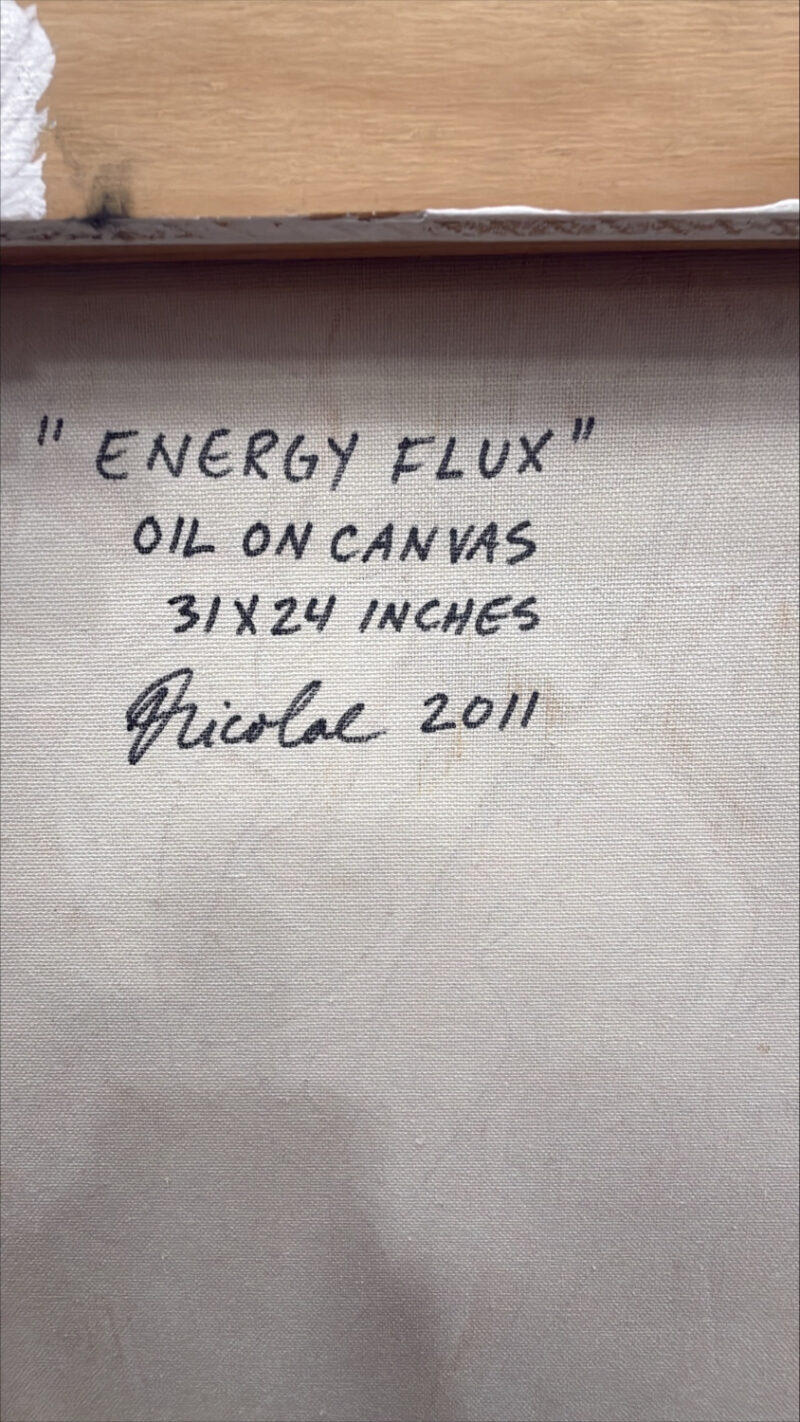 " ENERGY FLUX "
OIL ON CANVAS
31X24 INCHES
Nicolae 2011